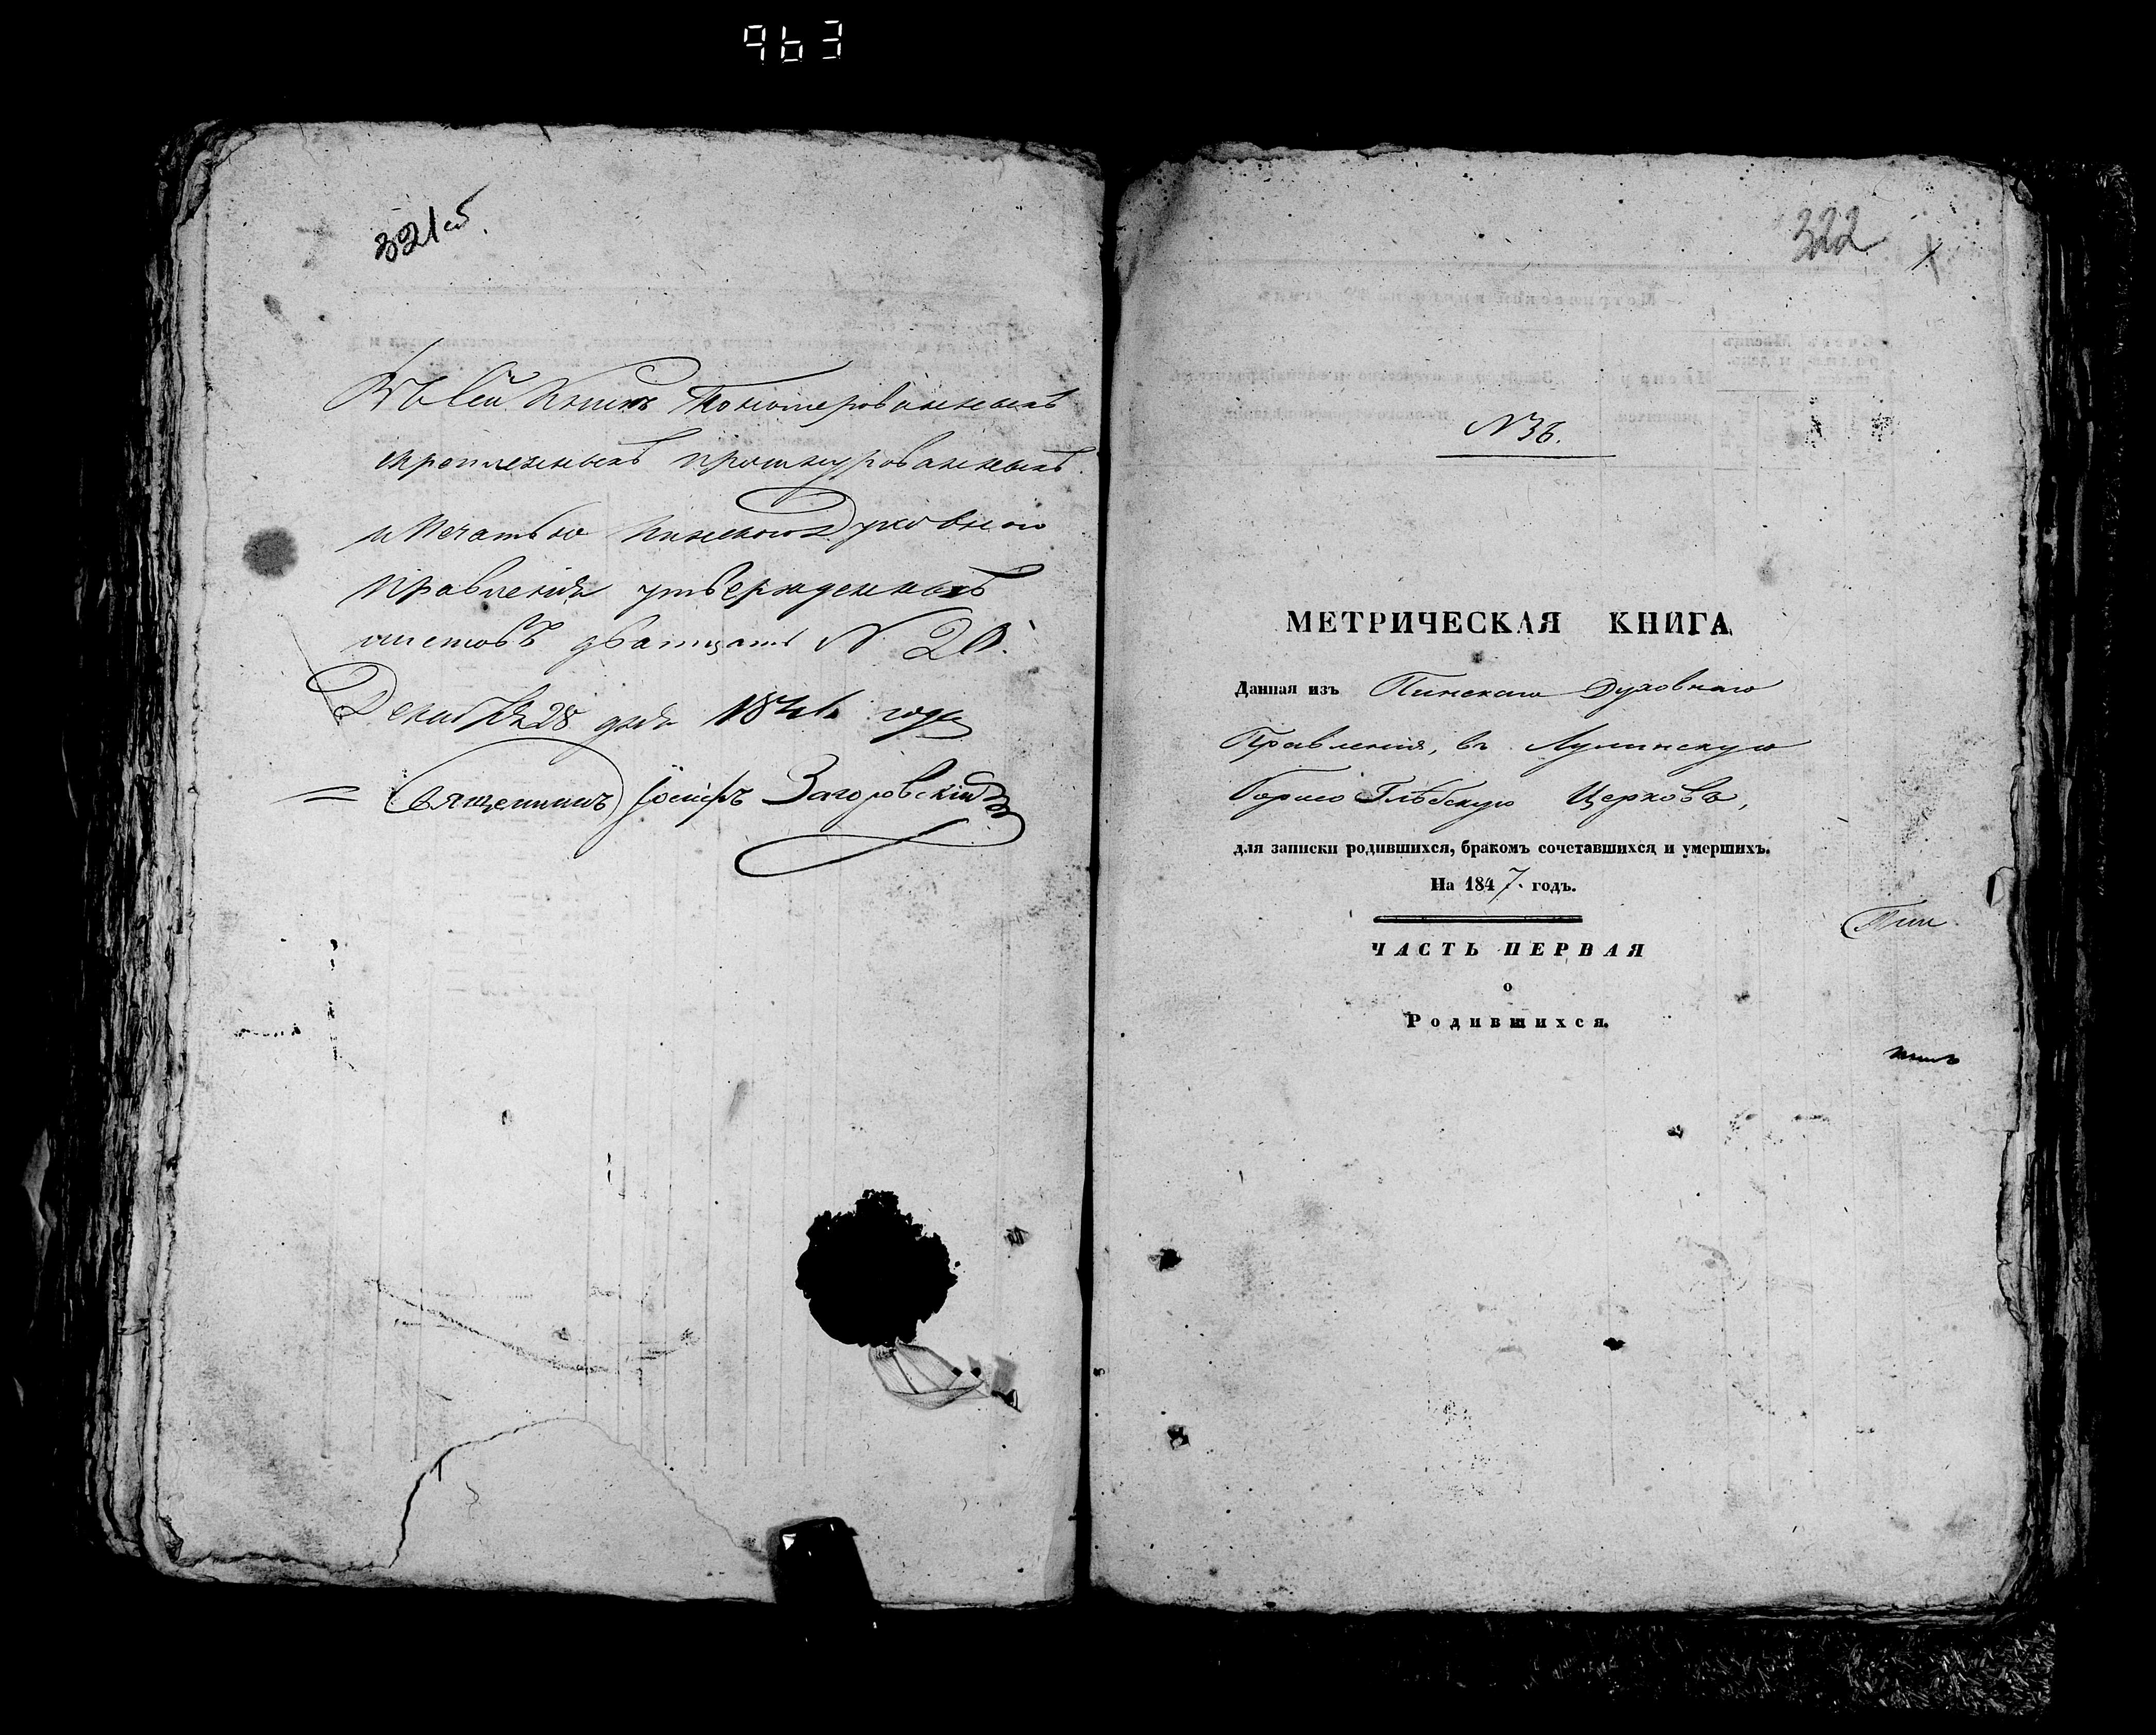 963
321об.
Въ сей Книгѣ Пономерованныхъ
скрепленныхъ прошнурованныхъ
и Печатью Пинскаго Духовнаго
Правленія утвержденныхъ
листовъ дватцать N 20.
Декабря 28 дня 1846 года
= Священникъ Іосифъ Загоровскій
322
N 36.
МЕТРИЧЕСКАЯ КНИГА
Данная изъ Пинскаго Духовнаго
Правленія, въ Лунинскую
Борисо Глѣбскую Церковь,
для записки родившихся, бракомъ сочетавшихся и умершихъ.
На 1847. годъ.
ЧАСТЬ ПЕРВАЯ
о
Родившихся.